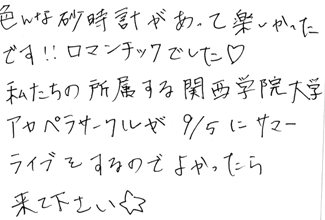 色んな砂時計があって楽しかった
です!! ロマンチックでした♡
私たちの所属する関西学院大学
アカペラサークルが 9/5 にサマー
ライブをするのでよかったら
来て下さい☆